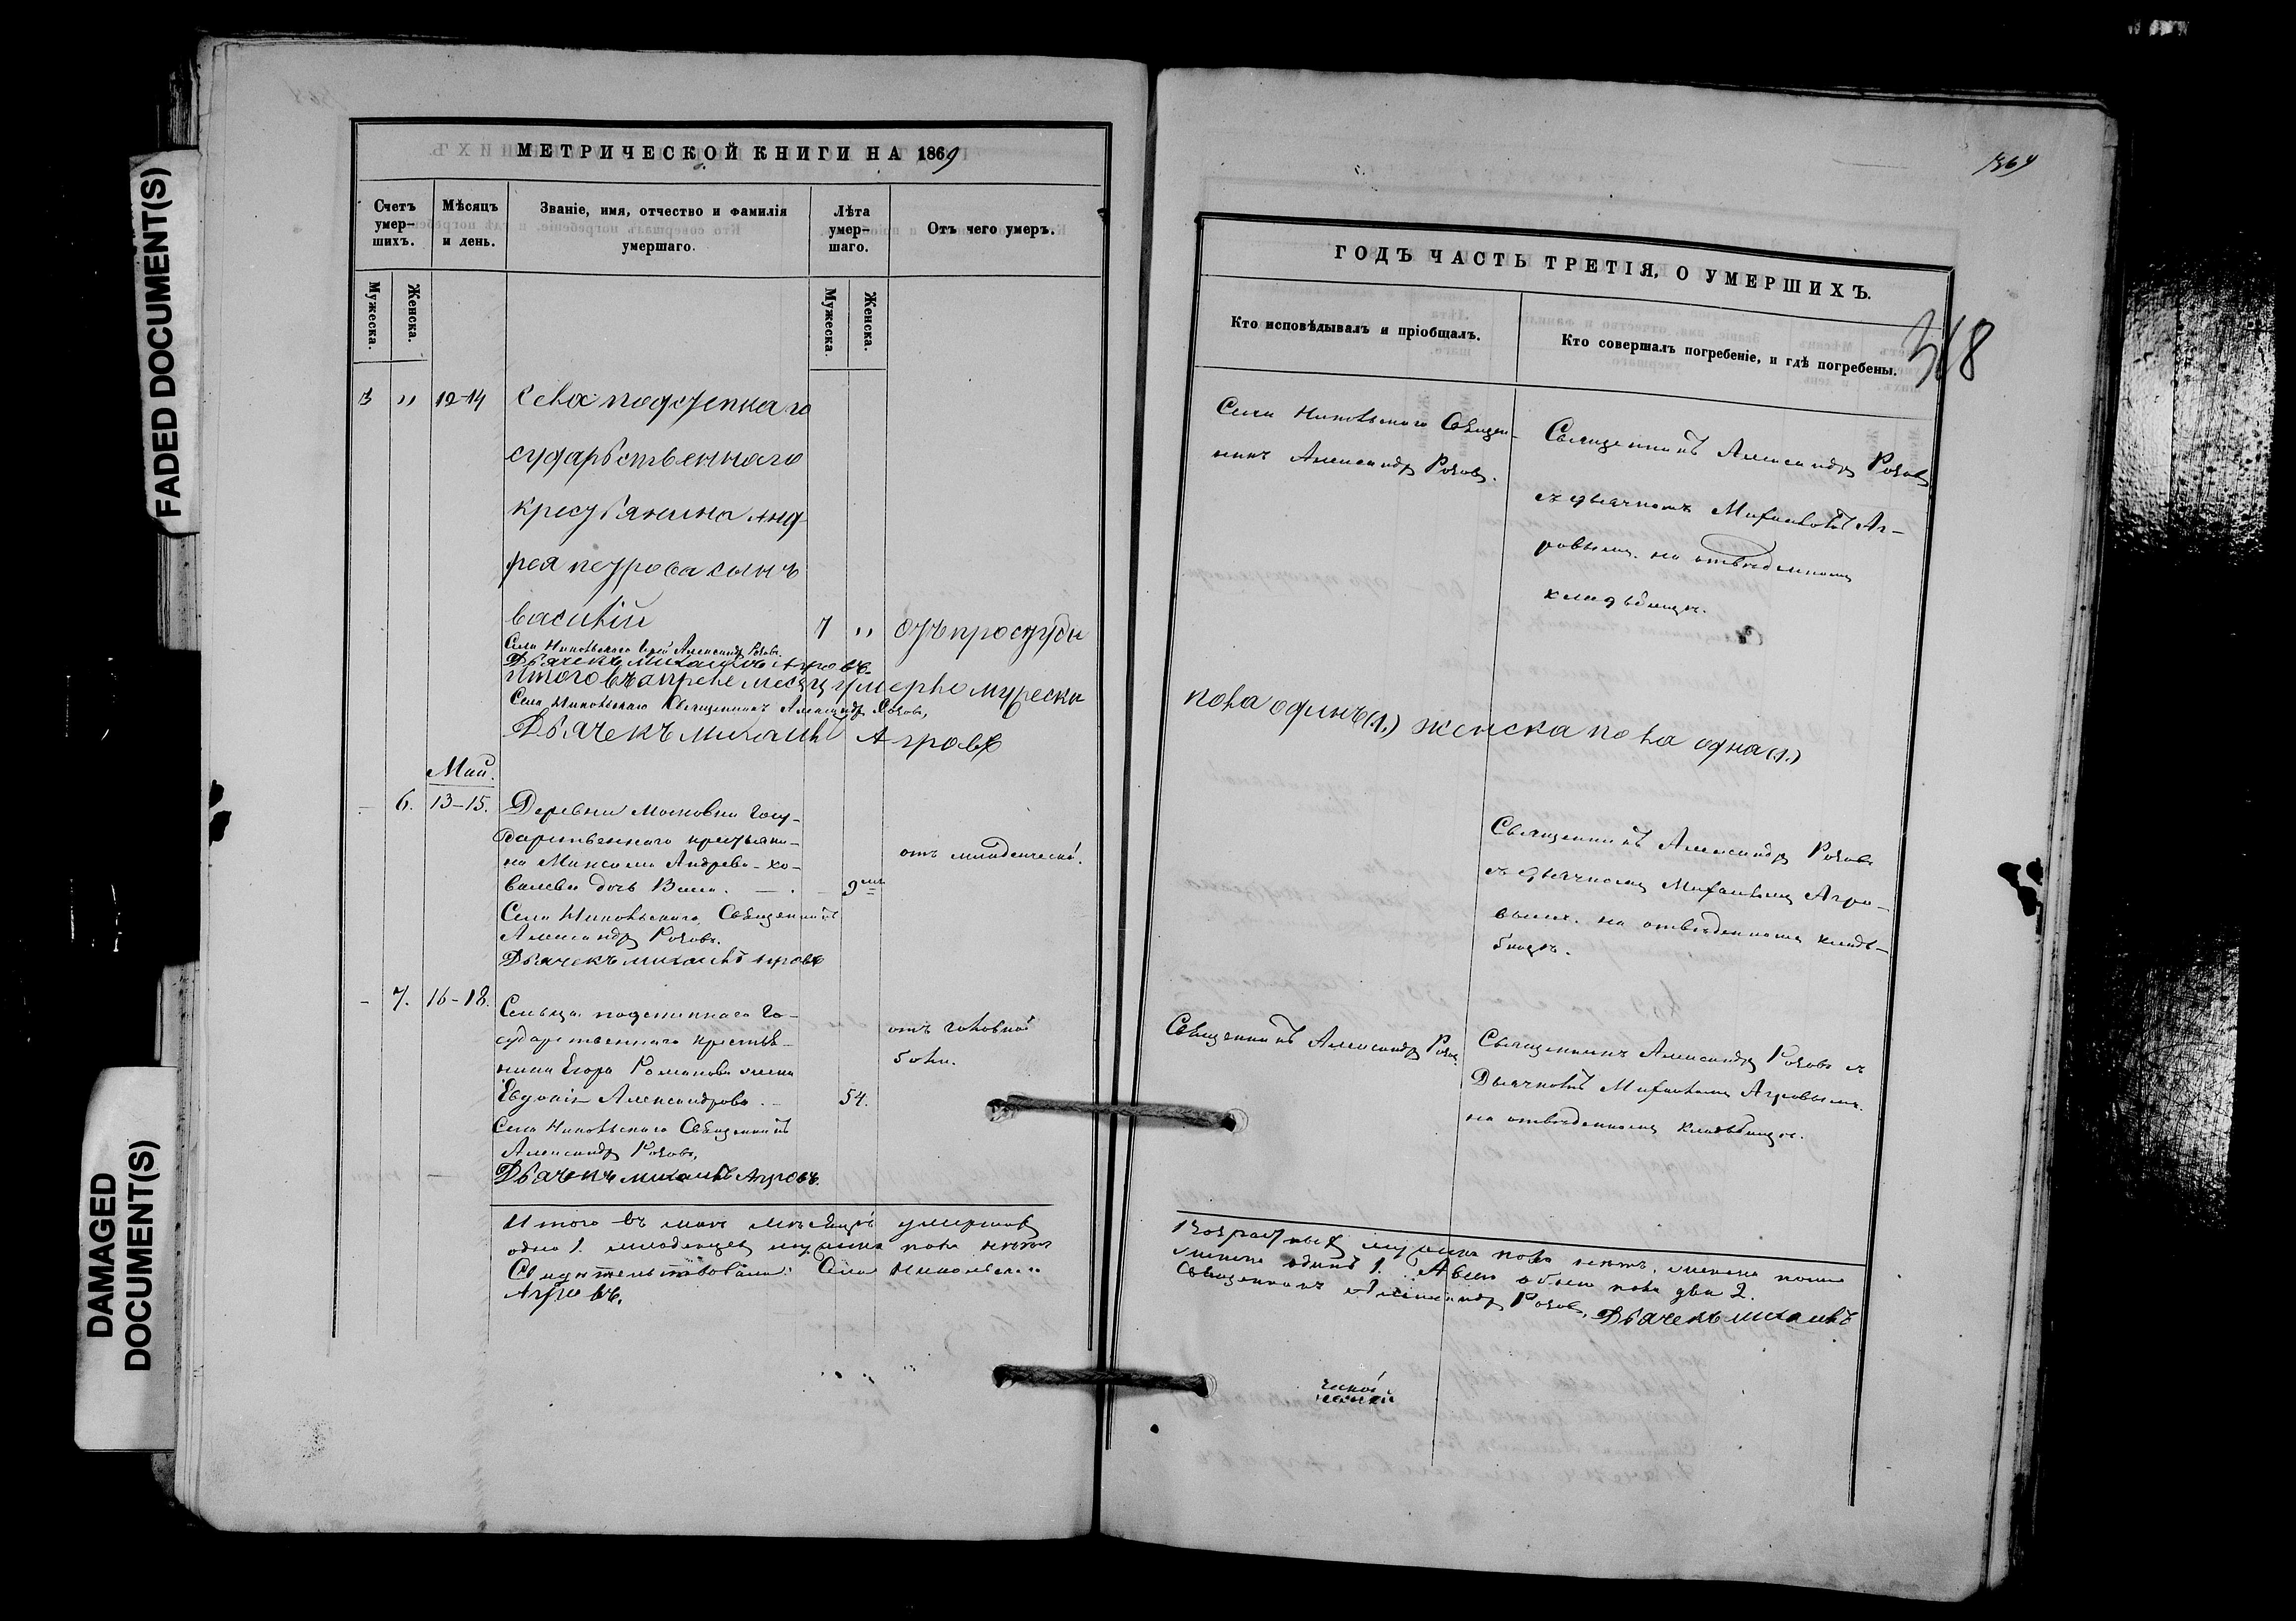 FADED DOCUMENT(S)
DAMAGED
DOCUMENT(S)
МЕТРИЧЕСКОЙ КНИГИ НА 1869
Счетъ умер-шихъ.
Мѣсяцъ и день.
Званіе, имя, отчество и фамилія умершаго.
Лѣта умер-шаго.
Отъ чего умеръ.
Мужеска.
Женска.
Мужеска.
Женска.
3 „ 12-14
села подстепнаго
сударственнаго
крестьянина Анд-
рея петрова сынъ
василій 7 „ отъ простуды
Села Никольскаго Іерей Александръ Роговъ.
Дьячекъ михаилъ Агровъ.
Итого въ апреле месяц умерло мужеска
Села Никольскаго Священникъ Александръ
Дьячекъ михаилъ Агровъ
Май.
6. 13-15. Деревни Московки Госу-
дарственнаго крестьяни-
на Максима Андреева-Ко-
валева дочь 9 отъ младенческой.
Села Никольскаго Священникъ
Александръ Роговъ.
Дьячекъ михаилъ Агровъ
7. 16-18.
Сельца подстепнаго Го-
сударственнаго крестья-
нина Егора Романова жена
Евдокія Александрова. 54.
отъ головной
боли.
Села Никольскаго Священникъ
Александръ Роговъ,
Дьячекъ михаилъ Агровъ.
Итого въ мае месяце умершихъ
одна 1. младенцев мужска пола нетъ
Свидетельствовали: Села Никольскаго
Агровъ.
1369
ГОДЪ ЧАСТЬ ТРЕТІЯ, О УМЕРШИХЪ.
368
Кто исповѣдывалъ и пріобщалъ.
Кто совершалъ погребеніе, и гдѣ погребены.
Села Никольскаго Священ-
никъ Александръ Роговъ.
Священникъ Александръ Роговъ
съ дьячкомъ Михаиломъ Аг-
ровымъ. на отведенномъ
кладбище.
пола одинъ (1.) женска пола одна (1.)
Священникъ Александръ Роговъ
съ дьячкомъ Михаиломъ Агро-
вымъ. на отведенномъ клад-
бище.
Священникъ Александръ Роговъ
Священникъ Александръ Роговъ съ
Дьячкомъ Михаиломъ Агровымъ.
на отведенномъ кладбище.
мужска пола нетъ, женска
одинъ 1. А всехъ обоего пола два 2.
Священникъ Александръ Роговъ, Дьячекъ михаилъ